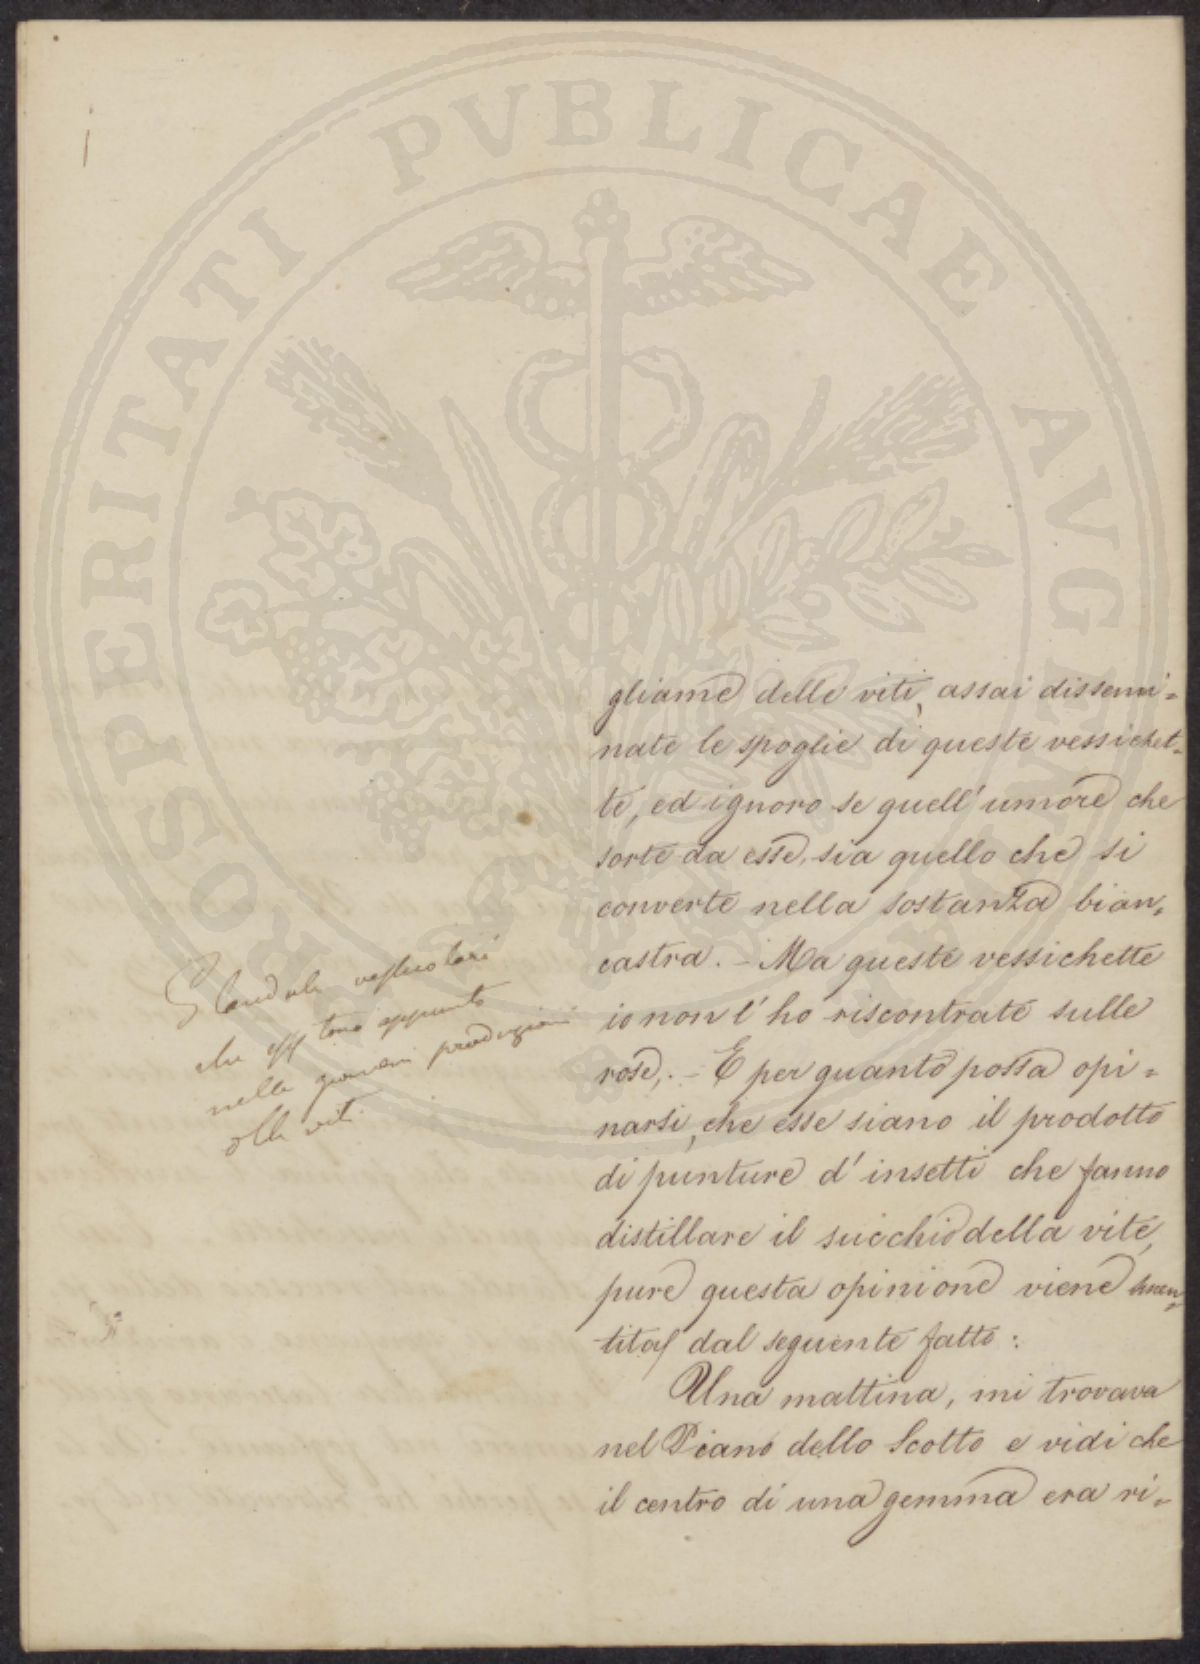 PROSPERITATI PVBLICAE AVGENDAE
gliame delle viti, assai dissemi=
nate le spoglie di queste vessichet=
te, ed ignoro se quell' umore che
sorte da esse, sia quello che si
converte nella sostanza bian=
castra. - Ma queste vessichette
io non l' ho riscontrate sulle
rose. - E per quanto possa opi=
narsi, che esse siano il prodotto
di punture d' insetti che fanno
distillare il succhio della vite,
pure questa opinione viene smen=
tita dal seguente fatto:
Una mattina, mi trovava
nel Piano dello Scotto e vidi che
il centro di una gemma era ri=
Glandule
che appunto
nelle giovani produzioni
viti